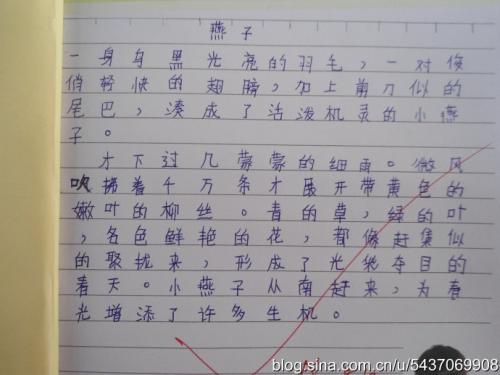 燕子
一身乌黑光亮的羽毛，一对俊
俏轻快的翅膀，加上剪刀似的
尾巴，凑成了活泼机灵的小燕
子。
才下过几蒙蒙的细雨。微风
吹拂着千万条才展开带黄色的
嫩叶的柳丝。青的草，绿的叶
，各色鲜艳的花，都像赶集似
的聚拢来，形成了光彩夺目的
春天。小燕子从南赶来，为春
光增添了许多生机。
blog.sina.com.cn/u/5437069908